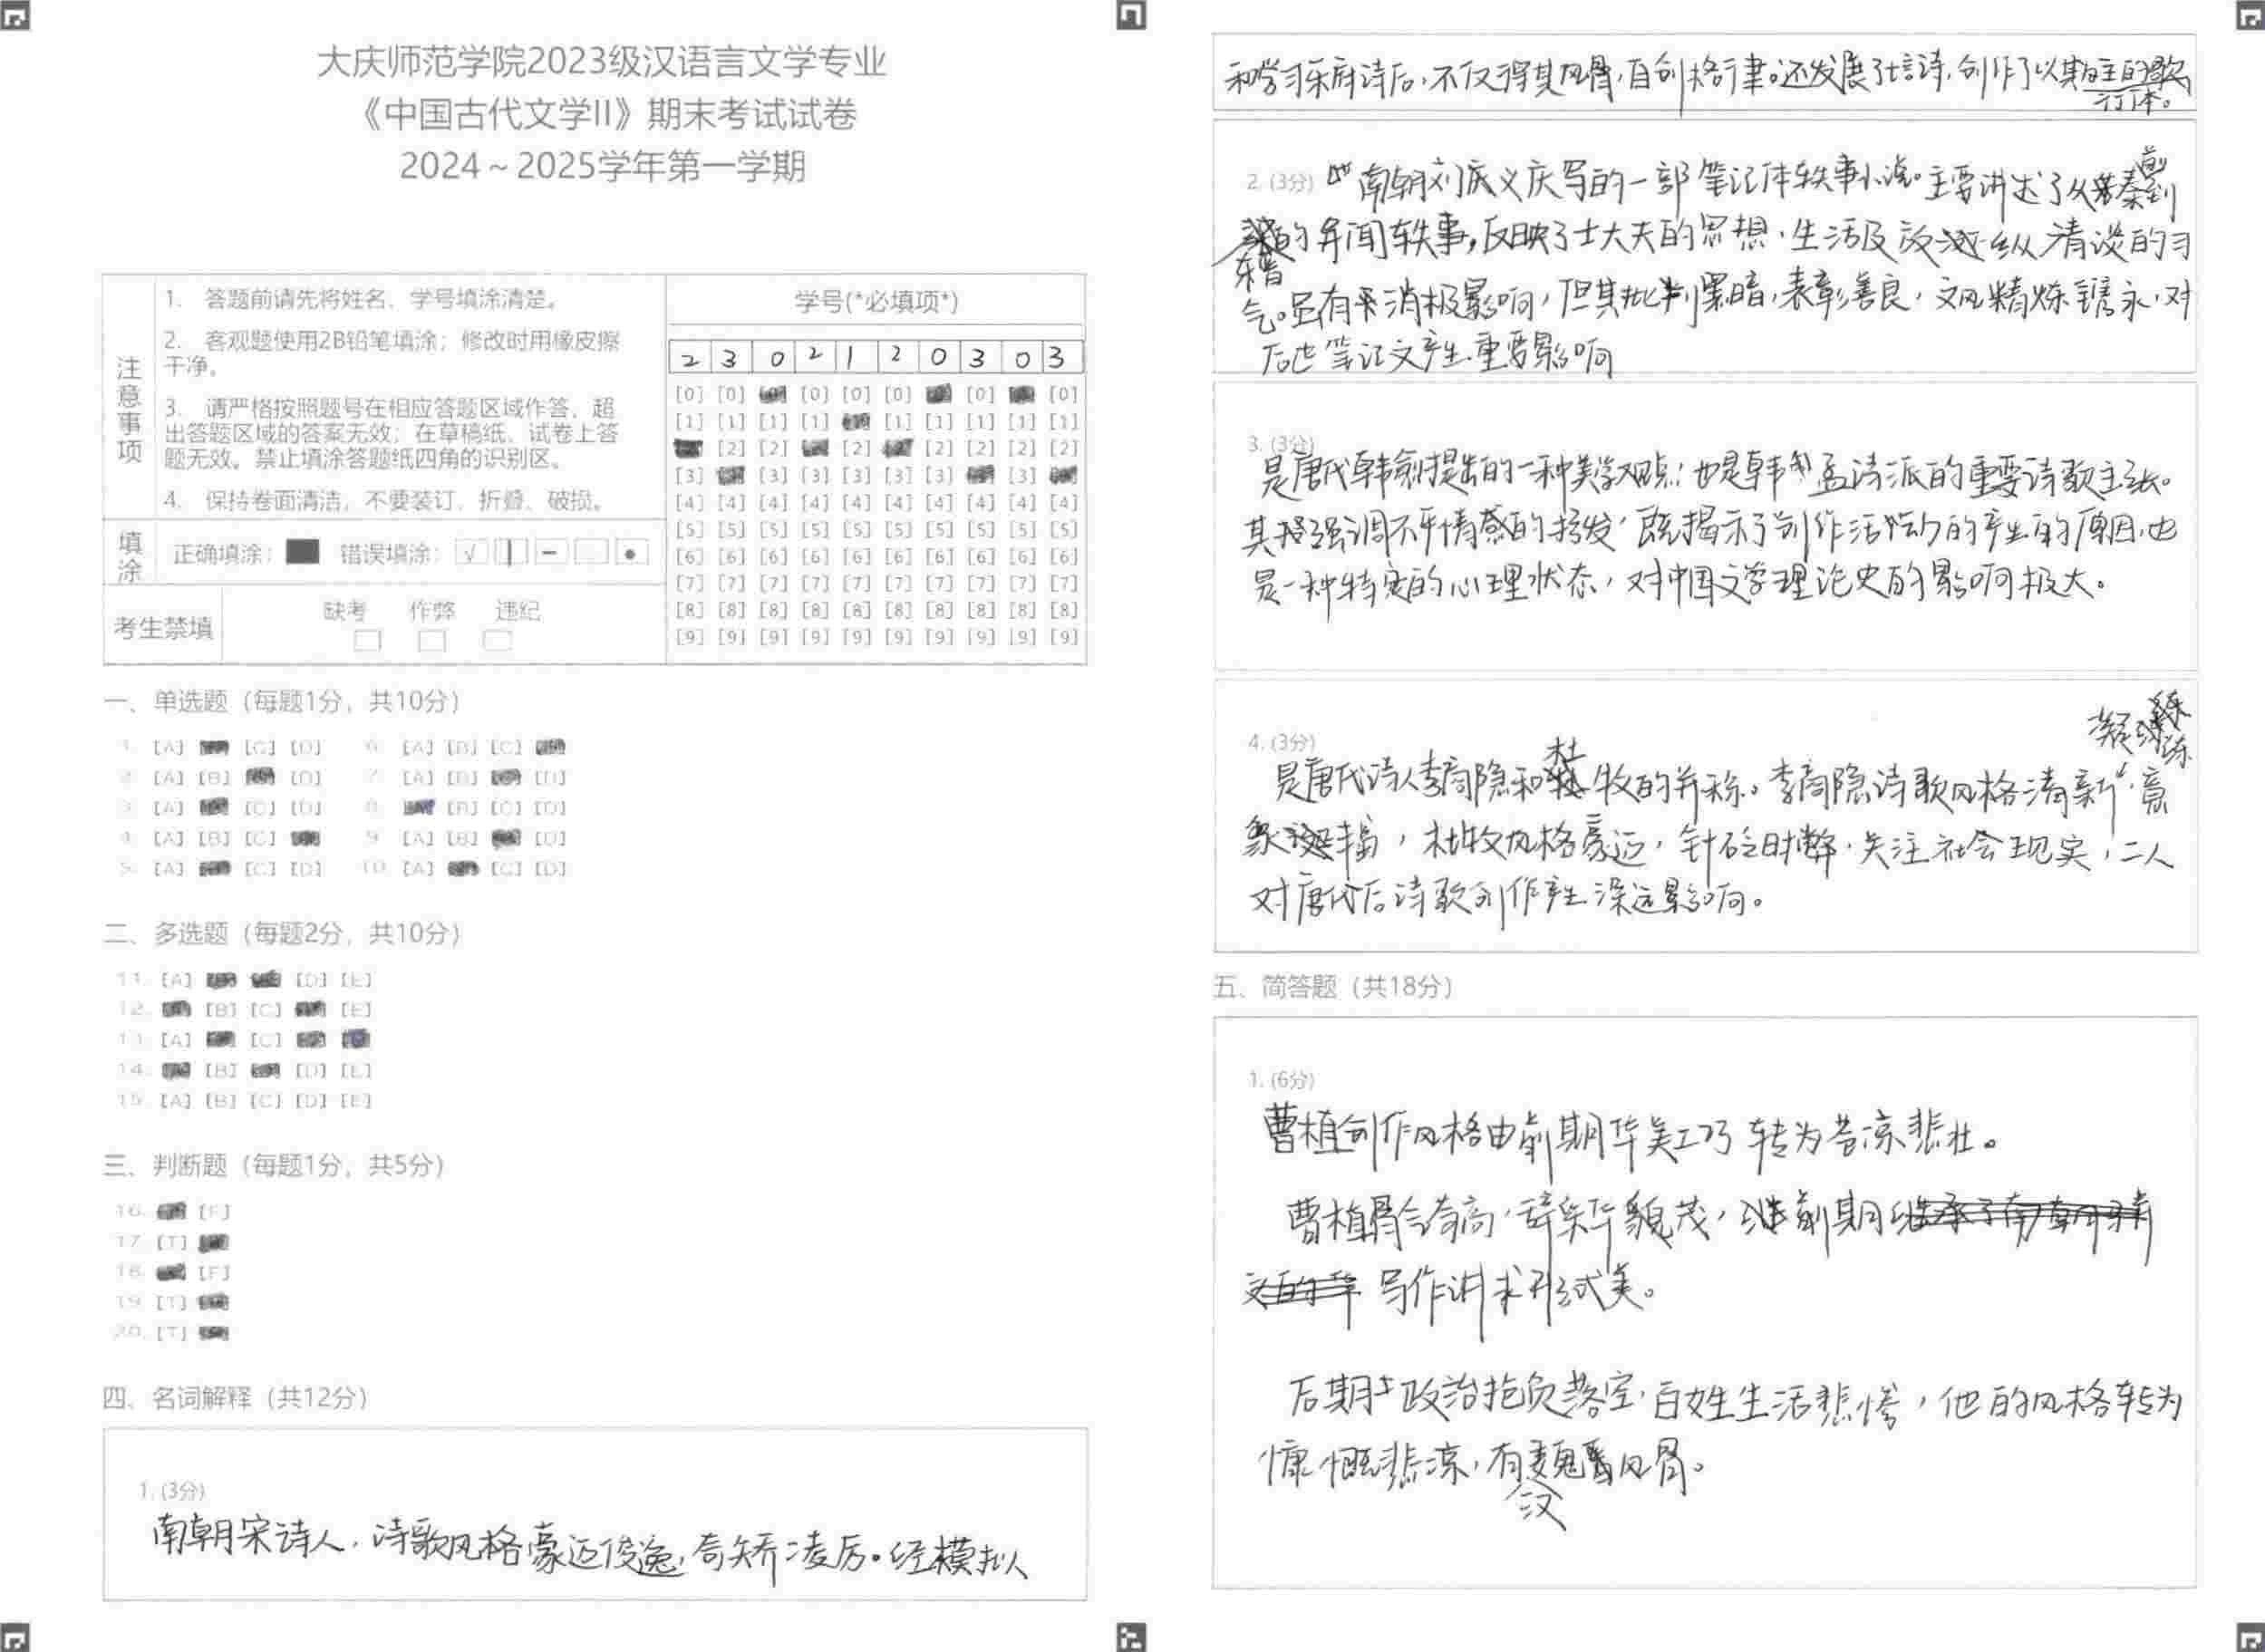 大庆师范学院2023级汉语言文学专业
《中国古代文学II》期末考试试卷
2024～2025学年第一学期
注意事项
1. 答题前请先将姓名、学号填涂清楚。
2. 客观题使用2B铅笔填涂；修改时用橡皮擦
干净。
3. 请严格按照题号在相应答题区域作答，超
出答题区域的答案无效；在草稿纸、试卷上答
题无效。禁止填涂答题纸四角的识别区。
4. 保持卷面清洁，不要装订、折叠、破损。
填涂
正确填涂： 错误填涂：
考生禁填
缺考 作弊 违纪
学号(*必填项*)
2 3 0 2 1 2 0 3 0 3
[0] [0] [0] [0] [0] [0] [0]
[1] [1] [1] [1] [1] [1] [1] [1] [1]
[2] [2] [2] [2] [2] [2] [2]
[3] [3] [3] [3] [3] [3] [3]
[4] [4] [4] [4] [4] [4] [4] [4] [4] [4]
[5] [5] [5] [5] [5] [5] [5] [5] [5] [5]
[6] [6] [6] [6] [6] [6] [6] [6] [6] [6]
[7] [7] [7] [7] [7] [7] [7] [7] [7] [7]
[8] [8] [8] [8] [8] [8] [8] [8] [8] [8]
[9] [9] [9] [9] [9] [9] [9] [9] [9] [9]
一、单选题（每题1分，共10分）
1. [A] [C] [D] 6. [A] [B] [C]
2. [A] [B] [D] 7. [A] [B] [D]
3. [A] [C] [D] 8. [B] [C] [D]
4. [A] [B] [C] 9. [A] [B] [D]
5. [A] [C] [D] 10. [A] [C] [D]
二、多选题（每题2分，共10分）
11. [A] [D] [E]
12. [B] [C] [E]
13. [A] [C]
14. [B] [D] [E]
15. [A] [B] [C] [D] [E]
三、判断题（每题1分，共5分）
16. [F]
17. [T]
18. [F]
19. [T]
20. [T]
四、名词解释（共12分）
1. (3分)
南朝宋诗人，诗歌风格豪迈俊逸，奇矫凌厉。经模拟
和学习乐府诗后，不仅得其风骨，自创格行律。还发展了七言诗，创作了以其为主的歌
行体。
2. (3分) 南朝刘庆义庆写的一部笔记体轶事小说。主要讲述了从前秦到
东晋的异闻轶事，反映了士大夫的思想，生活及放纵清谈的习
气。虽有消极影响，但其批判黑暗，表彰善良，文风精炼镌永，对
后世笔记文产生重要影响
3. (3分)
是唐代韩愈提出的一种美学观点，也是韩孟诗派的重要诗歌主张。
其强调不平情感的抒发，既揭示了创作活动的产生的原因，也
是一种特定的心理状态，对中国文学理论史的影响极大。
4. (3分)
是唐代诗人李商隐和杜牧的并称。李商隐诗歌风格清新凝练，意
象丰富，杜牧风格豪迈，针砭时弊，关注社会现实，二人
对唐代后诗歌创作产生深远影响。
五、简答题（共18分）
1. (6分)
曹植创作风格由前期华美工巧转为苍凉悲壮。
曹植骨气奇高，辞采华貌茂，前期
写作讲求形式美。
后期政治抱负落空，百姓生活悲惨，他的风格转为
慷慨悲凉，有汉魏风骨。